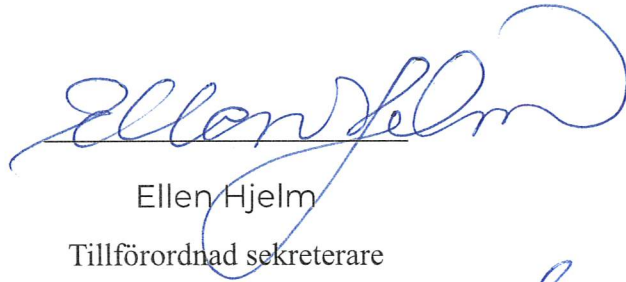 Ellen Hjelm
Ellen Hjelm
Tillförordnad sekreterare